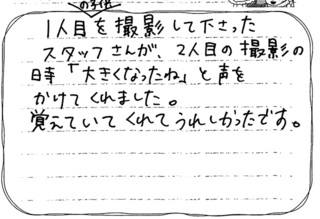 の子供
1人目を撮影して下さった
スタッフさんが、2人目の撮影の
日時「大きくなったね」と声を
かけてくれました。
覚えていてくれてうれしかったです。